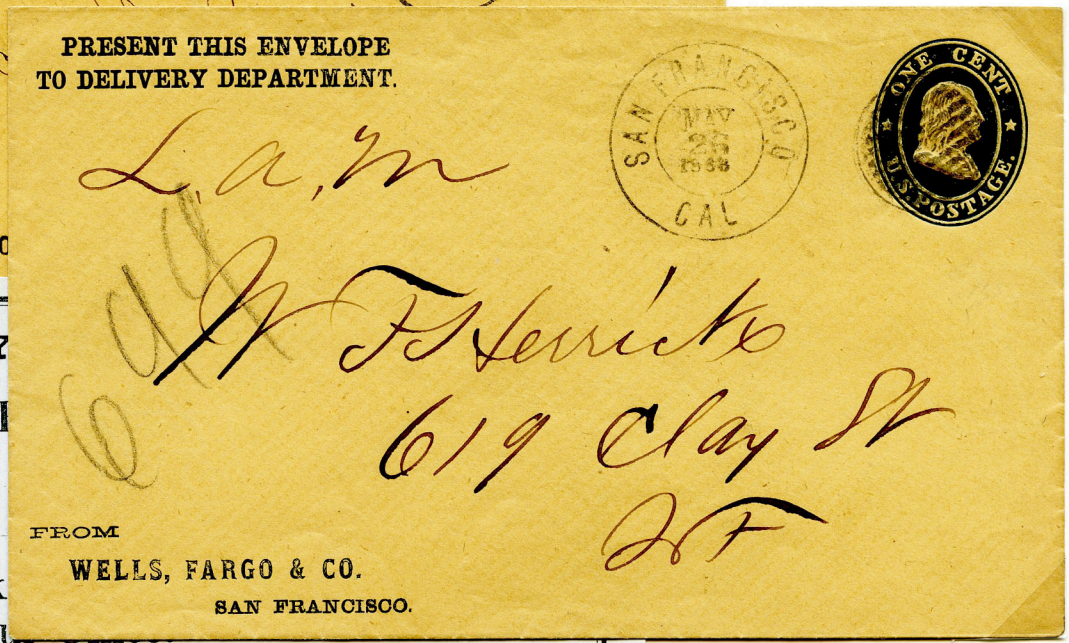 PRESENT THIS ENVELOPE
TO DELIVERY DEPARTMENT.
SAN FRANCISCO
MAY
1888
CAL
ONE CENT
U.S. POSTAGE.
L, a, m
699
W F Herrick
619 Clay St
S F
FROM
WELLS, FARGO & CO.
SAN FRANCISCO.